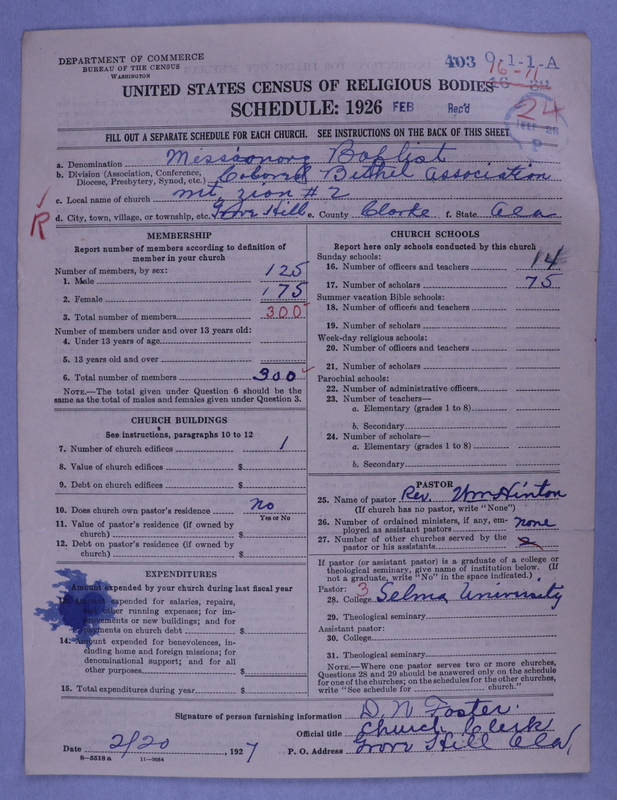 DEPARTMENT OF COMMERCE
BUREAU OF THE CENSUS
WASHINGTON
403 91-1-A
96-11
24
UNITED STATES CENSUS OF RELIGIOUS BODIES
SCHEDULE: 1926 FEB Rec'd
FILL OUT A SEPARATE SCHEDULE FOR EACH CHURCH. SEE INSTRUCTIONS ON THE BACK OF THIS SHEET
a. Denomination Missionary Baptist
b. Division (Association, Conference, Diocese, Presbytery, Synod, etc.) Colored Bethel Association
c. Local name of church mt. zion #2
R
d. City, town, village, or township, etc. Grove Hill e. County Clarke f. State Ala
MEMBERSHIP
Report number of members according to definition of
member in your church
Number of members, by sex:
1. Male 125
2. Female 175
3. Total number of members 300
Number of members under and over 13 years old:
4. Under 13 years of age
5. 13 years old and over
6. Total number of members 300
NOTE.—The total given under Question 6 should be the
same as the total of males and females given under Question 3.
CHURCH BUILDINGS
See instructions, paragraphs 10 to 12
7. Number of church edifices 1
8. Value of church edifices $
9. Debt on church edifices $
10. Does church own pastor's residence no
Yes or No
11. Value of pastor's residence (if owned by
church) $
12. Debt on pastor's residence (if owned by
church) $
EXPENDITURES
Amount expended by your church during last fiscal year
13. Amount expended for salaries, repairs,
and other running expenses; for im-
provements or new buildings; and for
payments on church debt $
14. Amount expended for benevolences, in-
cluding home and foreign missions; for
denominational support; and for all
other purposes $
15. Total expenditures during year $
CHURCH SCHOOLS
Report here only schools conducted by this church
Sunday schools:
16. Number of officers and teachers 14
17. Number of scholars 75
Summer vacation Bible schools:
18. Number of officers and teachers
19. Number of scholars
Week-day religious schools:
20. Number of officers and teachers
21. Number of scholars
Parochial schools:
22. Number of administrative officers
23. Number of teachers—
a. Elementary (grades 1 to 8)
b. Secondary
24. Number of scholars—
a. Elementary (grades 1 to 8)
b. Secondary
PASTOR
25. Name of pastor Rev. Wm Hinton
(If church has no pastor, write "None")
26. Number of ordained ministers, if any, em-
ployed as assistant pastors none
27. Number of other churches served by the
pastor or his assistants 2
If pastor (or assistant pastor) is a graduate of a college or
theological seminary, give name of institution below. (If
not a graduate, write "No" in the space indicated.)
Pastor: 3
28. College Selma University
29. Theological seminary
Assistant pastor:
30. College
31. Theological seminary
NOTE.—Where one pastor serves two or more churches,
Questions 28 and 29 should be answered only on the schedule
for one of the churches; on the schedules for the other churches,
write "See schedule for church."
Signature of person furnishing information D. N Foster.
Official title Church Clerk
Date 2/20, 1927 P. O. Address Grove Hill Ala
8-5518 a 11-9054